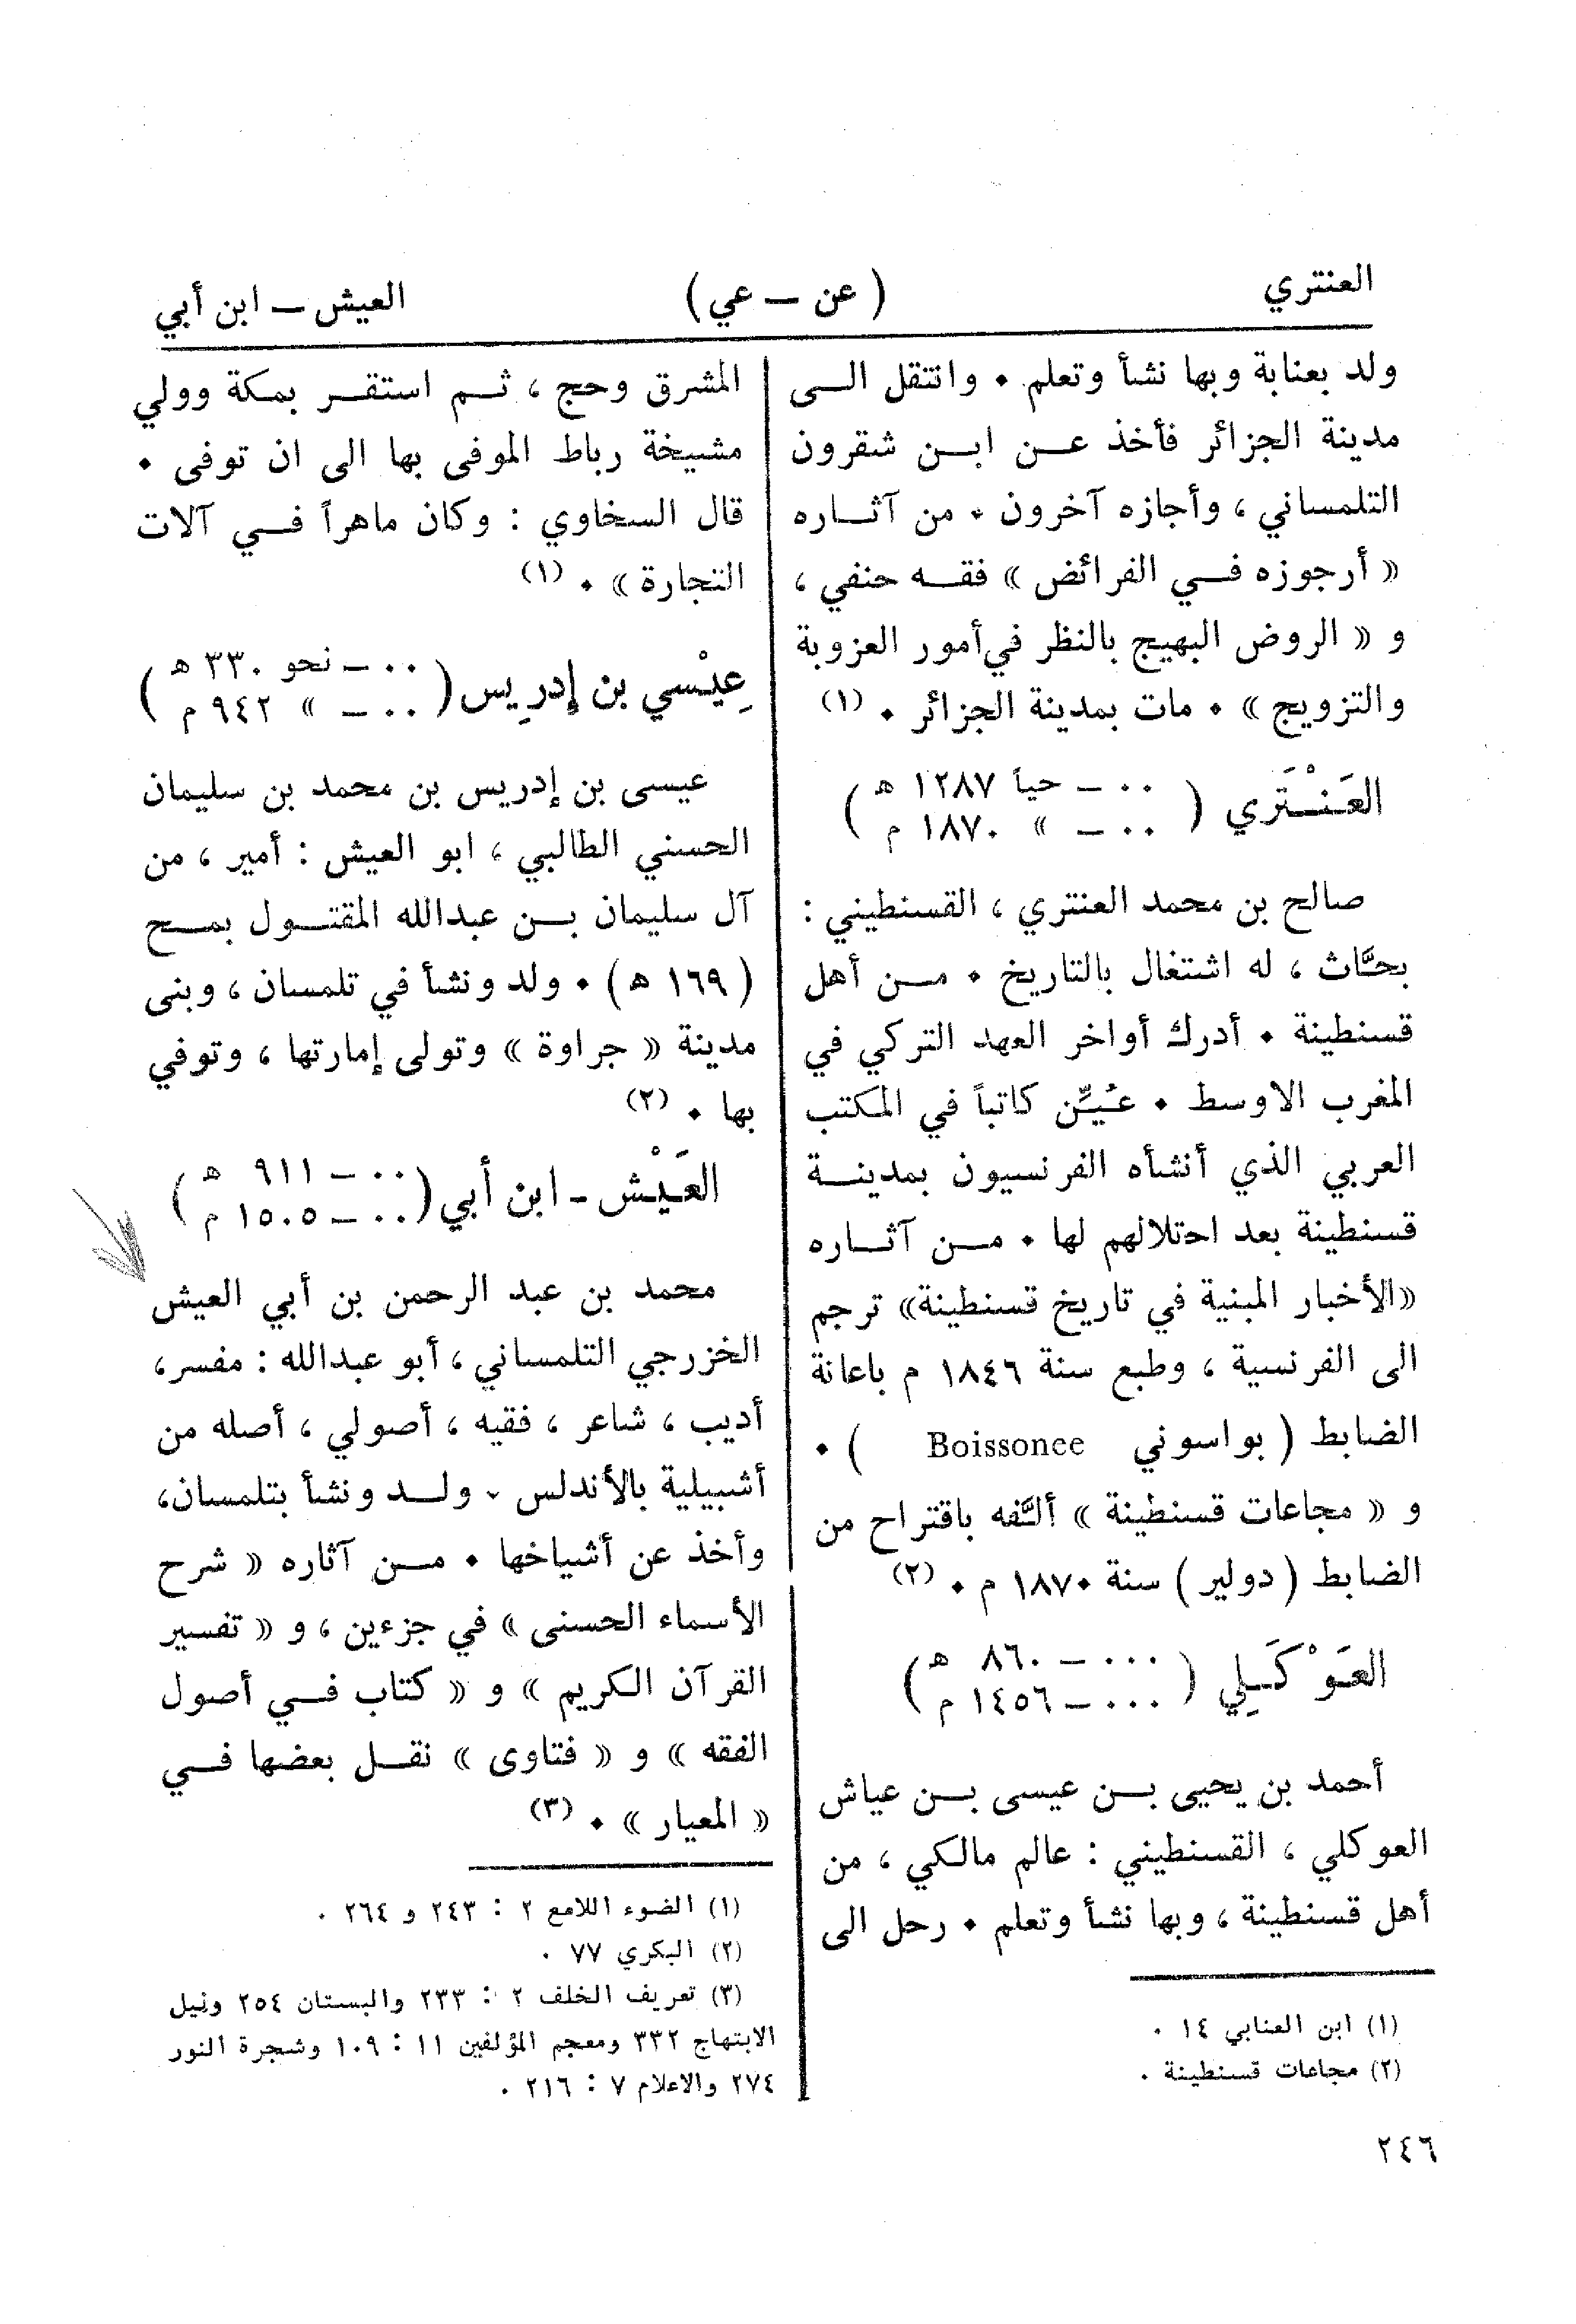 العنتري
( عن — عي )
العيش — ابن أبي
ولد بعنابة وبها نشأ وتعلم . وانتقل الى
مدينة الجزائر فأخذ عن ابن شقرون
التلمساني ، وأجازه آخرون . من آثاره
« أرجوزه في الفرائض » فقه حنفي ،
و « الروض البهيج بالنظر في أمور العزوبة
والتزويج » . مات بمدينة الجزائر . (١)
العَنْتَري ( ٠٠ — حياً ١٢٨٧ ه
٠٠ — » ١٨٧٠ م )
صالح بن محمد العنتري ، القسنطيني :
بحَّاث ، له اشتغال بالتاريخ . من أهل
قسنطينة . أدرك أواخر العهد التركي في
المغرب الاوسط . عُيِّن كاتباً في المكتب
العربي الذي أنشأه الفرنسيون بمدينة
قسنطينة بعد احتلالهم لها . من آثاره
«الأخبار المبنية في تاريخ قسنطينة» ترجم
الى الفرنسية ، وطبع سنة ١٨٤٦ م باعانة
الضابط ( بواسوني Boissonee ) .
و « مجاعات قسنطينة » ألَّفه باقتراح من
الضابط ( دولير ) سنة ١٨٧٠ م . (٢)
العَوْكَلِي ( ٠٠٠ — ٨٦٠ ه
٠٠٠ — ١٤٥٦ م )
أحمد بن يحيى بن عيسى بن عياش
العوكلي ، القسنطيني : عالم مالكي ، من
أهل قسنطينة ، وبها نشأ وتعلم . رحل الى
(١) ابن العنابي ١٤ .
(٢) مجاعات قسنطينة .
المشرق وحج ، ثم استقر بمكة وولي
مشيخة رباط الموفى بها الى ان توفى .
قال السخاوي : وكان ماهراً في آلات
التجارة » . (١)
عِيْسي بن إدرِيس ( ٠٠ — نحو ٣٣٠ ه
٠٠ — » ٩٤٢ م )
عيسى بن إدريس بن محمد بن سليمان
الحسني الطالبي ، ابو العيش : أمير ، من
آل سليمان بن عبدالله المقتول بمح
( ١٦٩ ه ) . ولد ونشأ في تلمسان ، وبنى
مدينة « جراوة » وتولى إمارتها ، وتوفي
بها . (٢)
العَيْش - ابن أبي ( ٠٠ — ٩١١ ه
٠٠ — ١٥٠٥ م )
محمد بن عبد الرحمن بن أبي العيش
الخزرجي التلمساني ، أبو عبدالله : مفسر ،
أديب ، شاعر ، فقيه ، أصولي ، أصله من
أشبيلية بالأندلس . ولد ونشأ بتلمسان ،
وأخذ عن أشياخها . من آثاره « شرح
الأسماء الحسنى » في جزءين ، و « تفسير
القرآن الكريم » و « كتاب في أصول
الفقه » و « فتاوى » نقل بعضها في
« المعيار » . (٣)
(١) الضوء اللامع ٢ : ٢٤٣ و ٢٦٤ .
(٢) البكري ٧٧ .
(٣) تعريف الخلف ٢ : ٢٣٣ والبستان ٢٥٤ ونيل
الابتهاج ٣٣٢ ومعجم المؤلفين ١١ : ١٠٩ وشجرة النور
٢٧٤ والاعلام ٧ : ٢١٦ .
٢٤٦